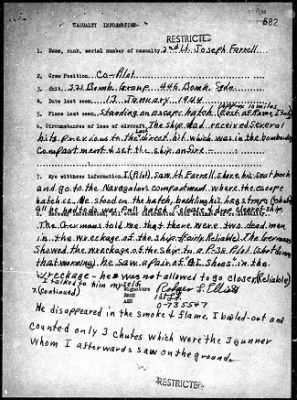 RESTRICTED
682
CASUALTY INFORMATION
1. Name, rank, serial number of casualty. 2nd Lt. Joseph Farrell
2. Crew Position. Co-Pilot
3. Unit. 321 Bomb Group. 446 Bomb. Sqdn.
4. Date last seen. 13 January 1944
5. Place last seen. standing on escape hatch (Approx 10 miles East of Rome, Italy)
6. Circumstances of loss of aircraft. The ship had received several
hits previous to the last direct hit which was in the bombay
compartment & set the ship on fire —
7. Eye witness information. I (Pilot) saw Lt Farrell shove his seat back
and go to the Navagator's compartment where the escape
hatch is. He stood on the hatch, buckling his leg straps (chute)
all he had to do was pull hatch release & drop clear of ship
The Germans told me that there were two dead men
in the wreckage of the ship (fairly reliable) The Germans
showed the wreckage of the ship to a P-38 Pilot (shot down
that morning) he saw a pair of "G.I. Shoes" in the
wreckage - he was not allowed to go closer (Reliable)
I talked to him myself.
7. (Continued)
Signature Rodger L. Ellis
Rank 1st Lt.
ASN 0-735547
He disappeared in the smoke & flame. I bailed-out and
counted only 3 chutes which were the 3 gunners
whom I afterwards saw on the ground.
RESTRICTED